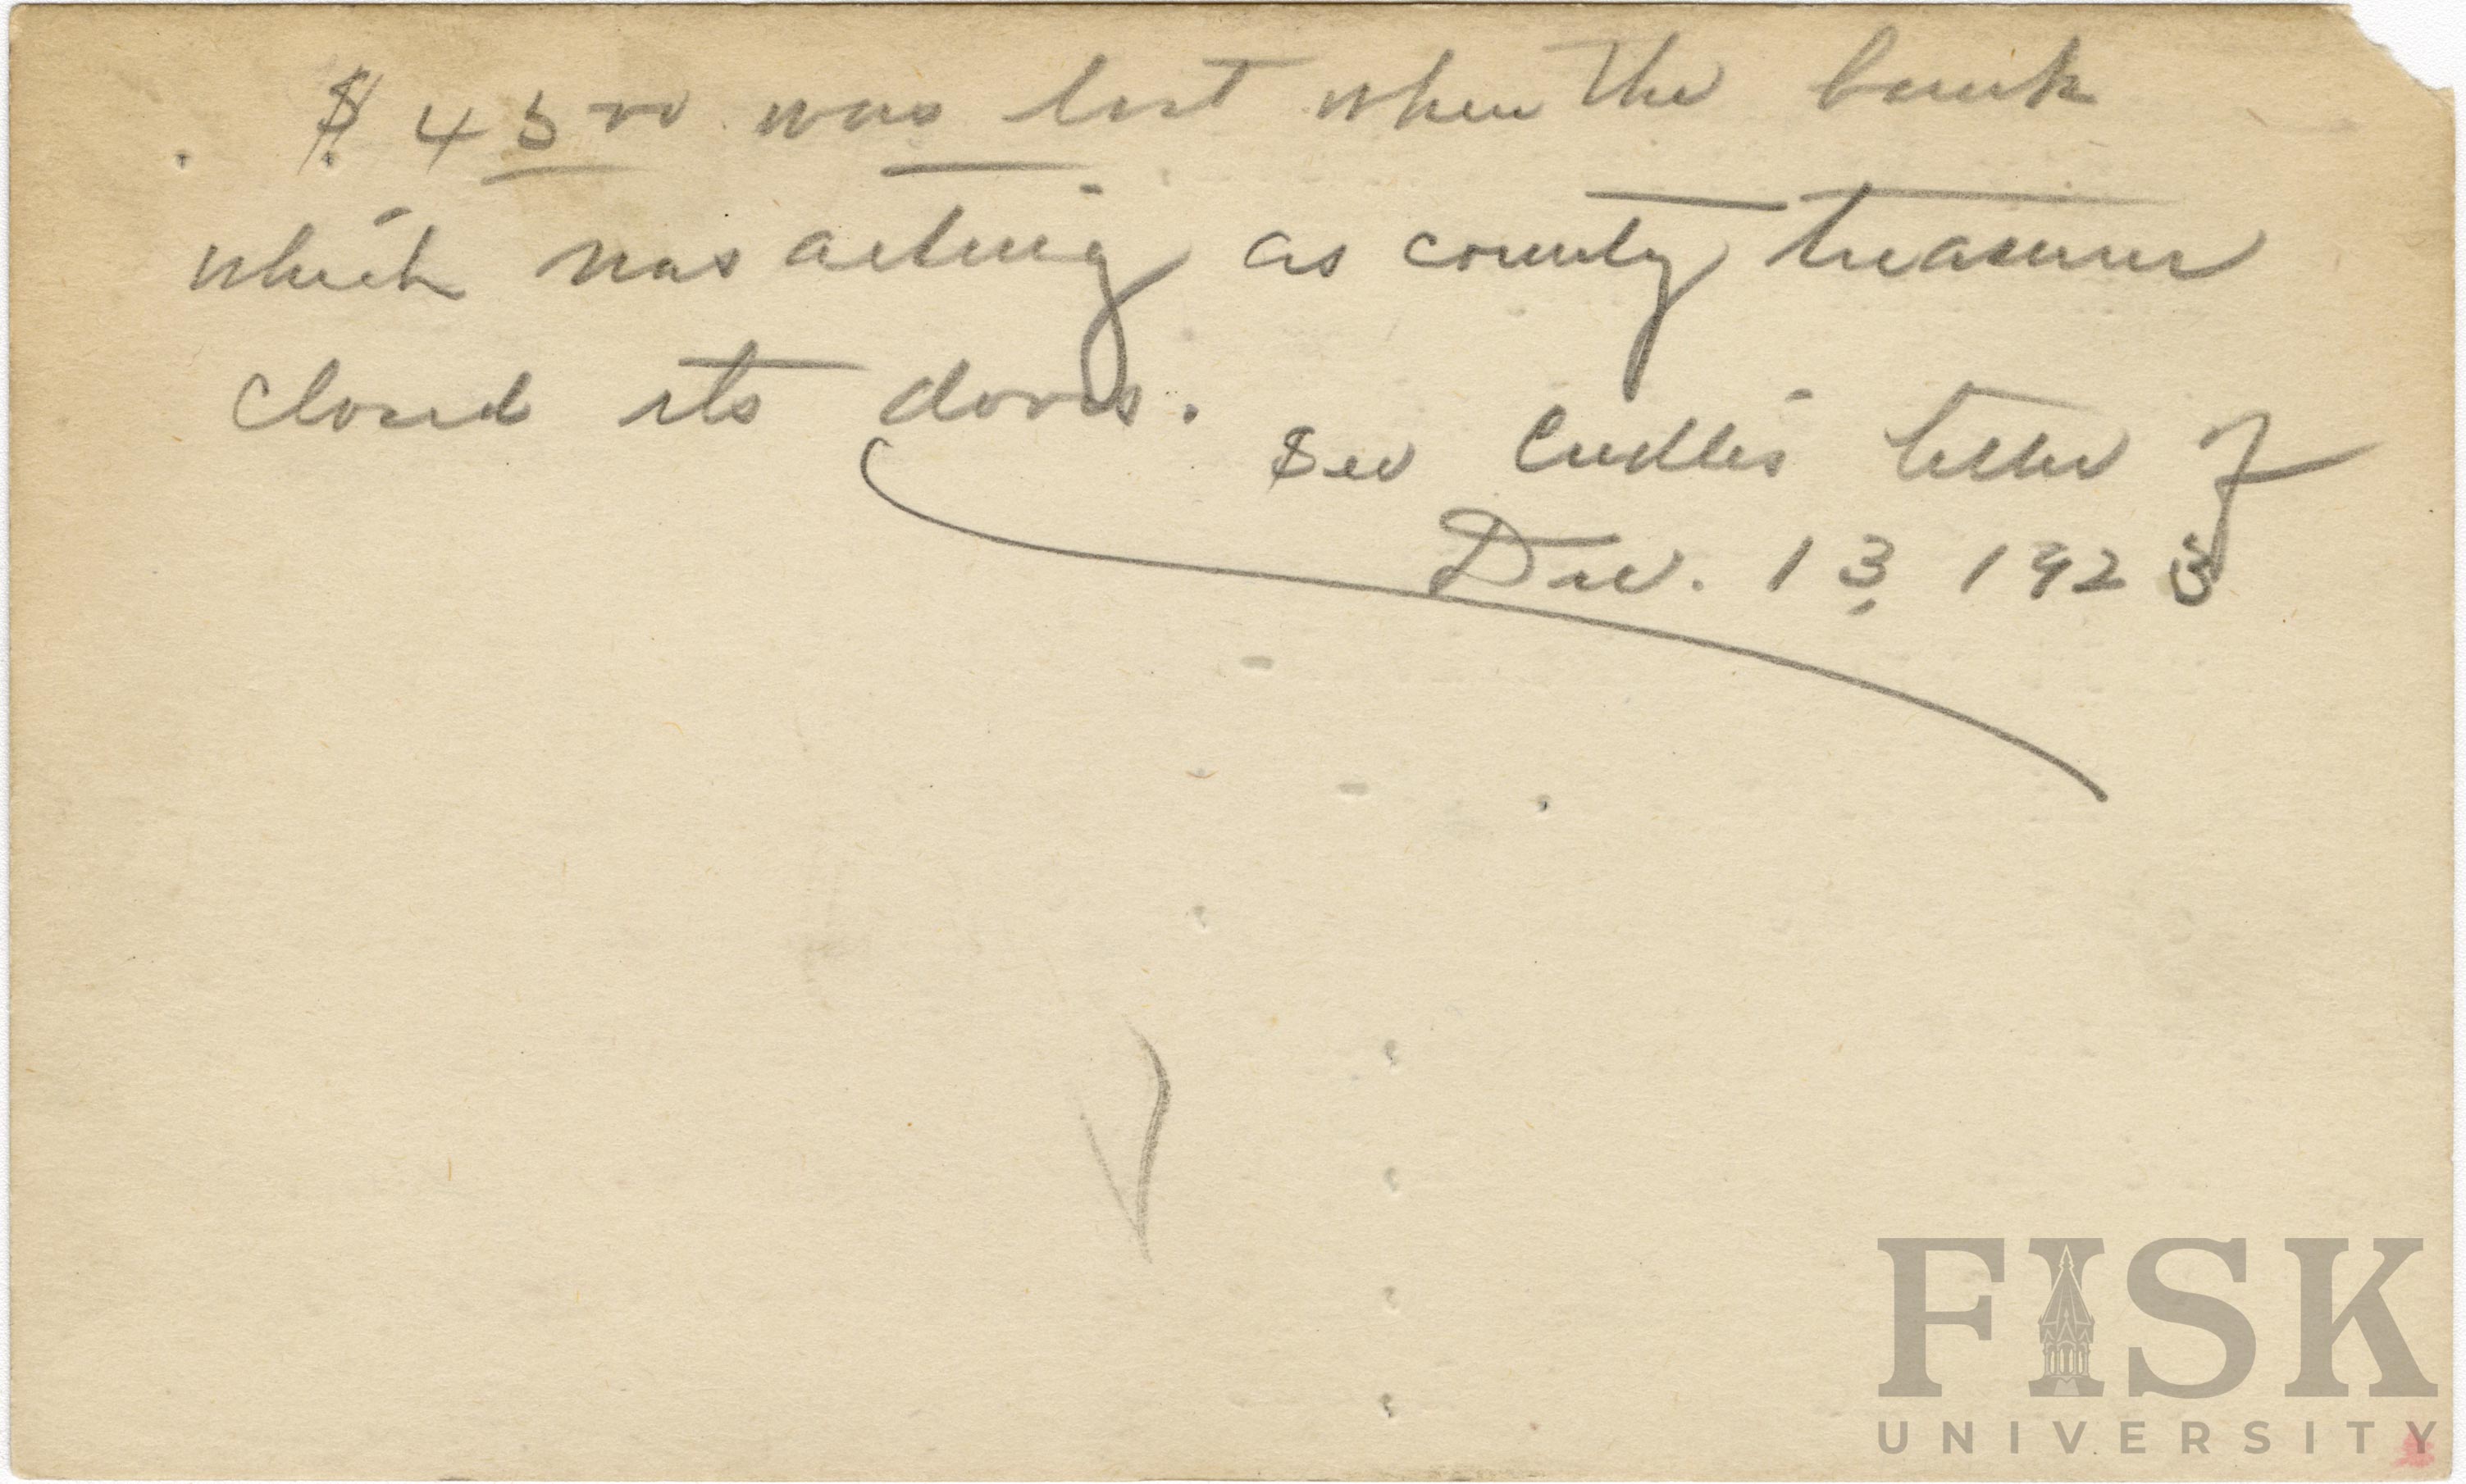 $ 45 00 was lost when the bank
which was acting as county treasurer
closed its doors.
See letter of
Dec. 13, 1923
FISK
UNIVERSITY